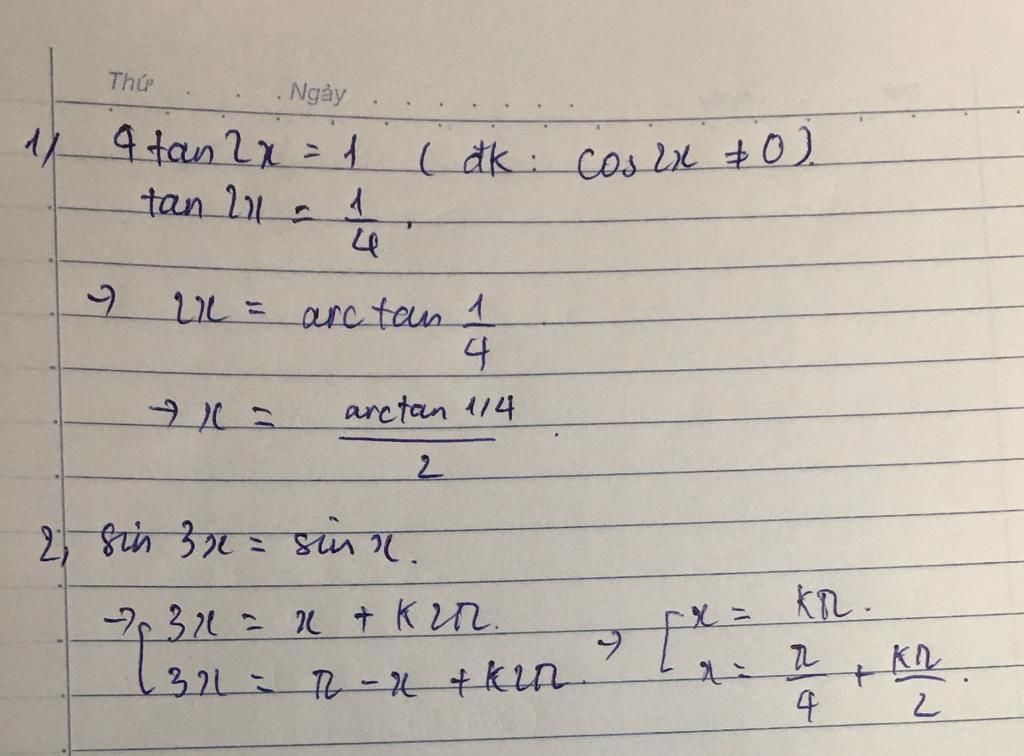 Thứ . . . Ngày . . . . . . .
1) 4 tan 2x = 1 ( đk : cos 2x ≠ 0 ).
tan 2x = 1/4 .
→ 2x = arc tan 1/4
→ x = arctan 1/4 / 2 .
2, sin 3x = sin x .
→ [ 3x = x + k2π . → [ x = kπ .
3x = π - x + k2π . x = π/4 + kπ/2 .